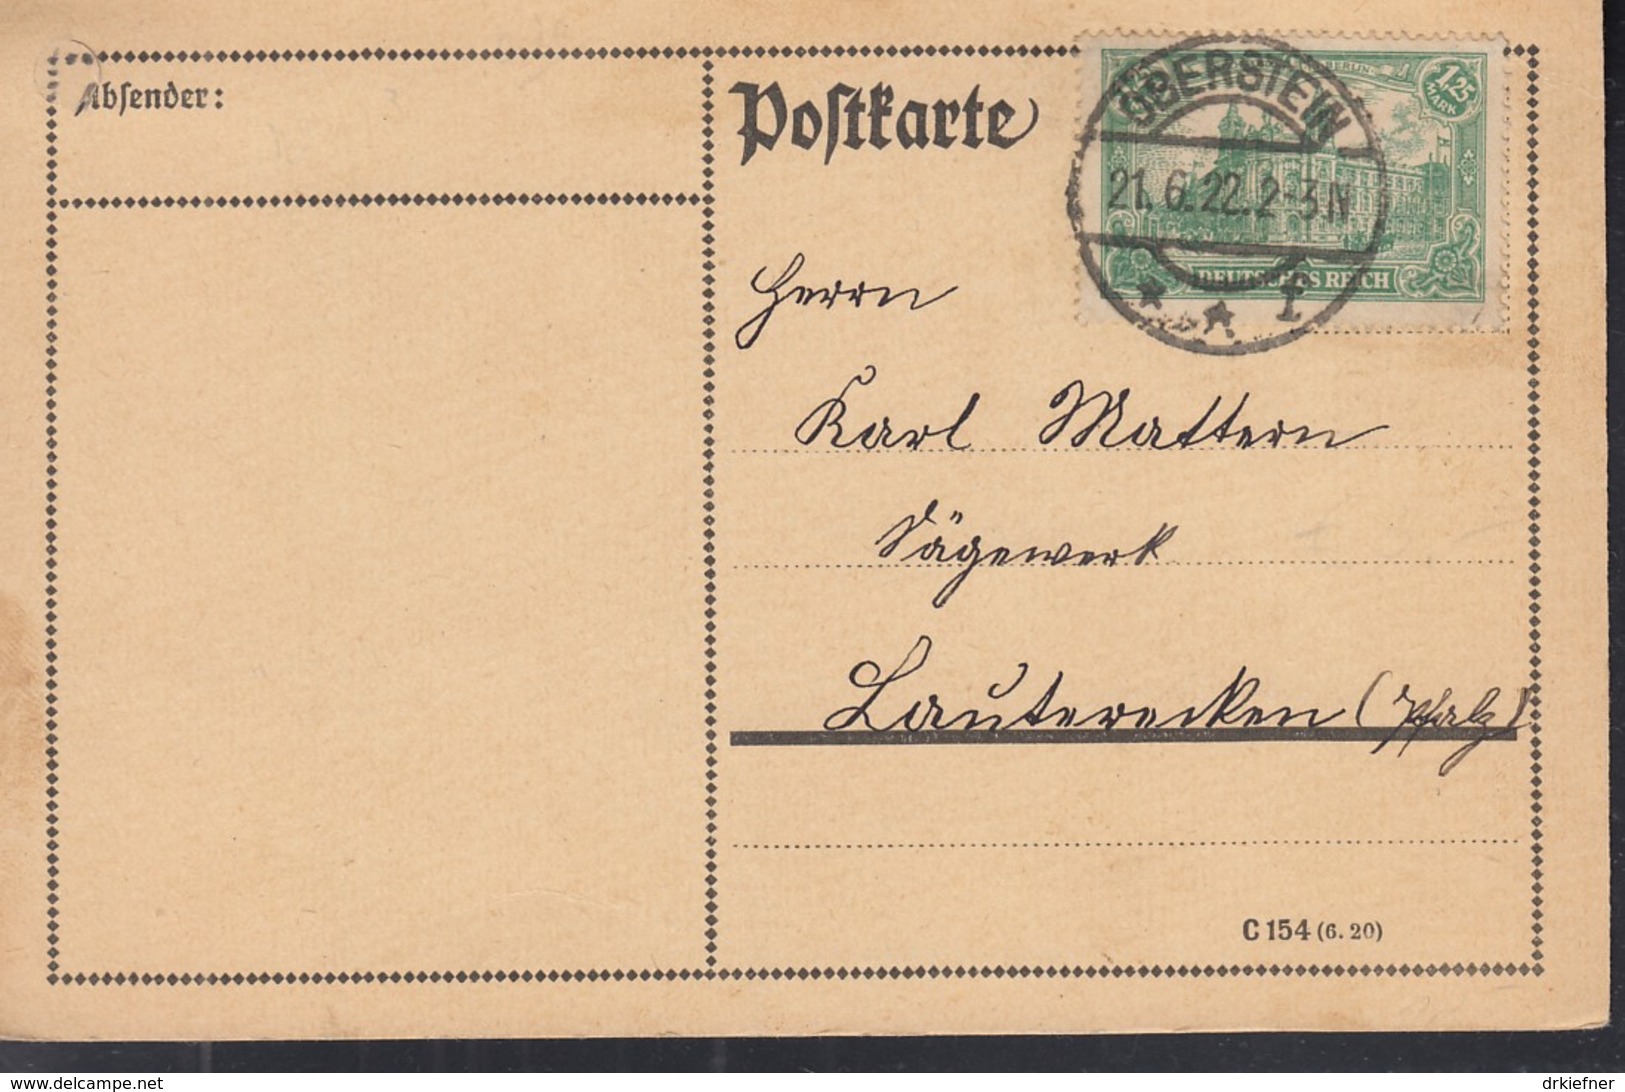 Absender:
Postkarte
BERLIN
1,25
MARK
DEUTSCHES REICH
OBERSTEIN
21.6.22.2-3N
* * 1
Herrn
Karl Mattern
Sägewerk
Lauterecken (Pfalz)
C 154 (6. 20)
delcampe.net
drkiefner